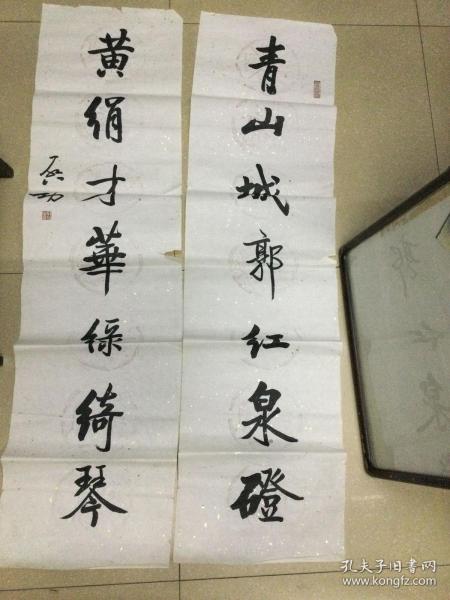 青山城郭红泉磴
黄绢才华绿绮琴
启功
孔夫子旧书网
www.kongfz.com